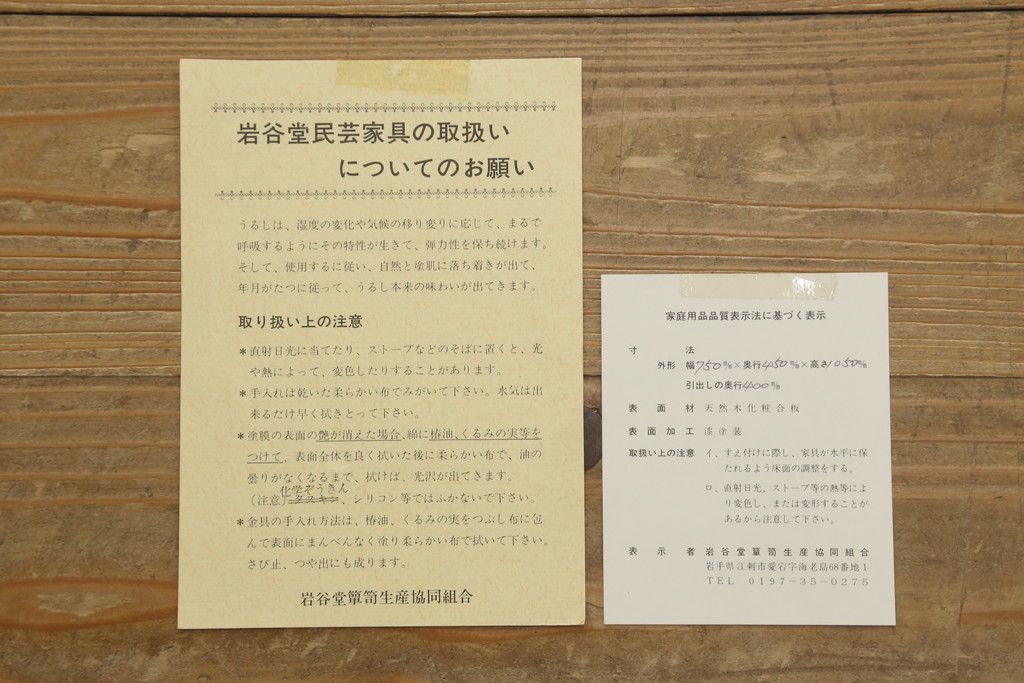 岩谷堂民芸家具の取扱い
についてのお願い
うるしは、湿度の変化や気候の移り変りに応じて、まるで
呼吸するようにその特性が生きて、弾力性を保ち続けます。
そして、使用するに従い、自然と塗肌に落ち着きが出て、
年月がたつに従って、うるし本来の味わいが出てきます。
取り扱い上の注意
＊直射日光に当てたり、ストーブなどのそばに置くと、光
や熱によって、変色したりすることがあります。
＊手入れは乾いた柔らかい布でみがいて下さい。水気は出
来るだけ早く拭きとって下さい。
＊塗膜の表面の艶が消えた場合、綿に椿油、くるみの実等を
つけて、表面全体を良く拭いた後に柔らかい布で、油の
曇りがなくなるまで、拭けば、光沢が出てきます。
化学ぞうきん
〔注意〕ダスキン、シリコン等ではふかないで下さい。
＊金具の手入れ方法は、椿油、くるみの実をつぶし布に包
んで表面にまんべんなく塗り柔らかい布で拭いて下さい。
さび止、つや出にも成ります。
岩谷堂簞笥生産協同組合
家庭用品品質表示法に基づく表示
寸法
外形 幅750㎜×奥行450㎜×高さ1050㎜
引出しの奥行400㎜
表面材 天然木化粧合板
表面加工 漆塗装
取扱い上の注意 イ、すえ付けに際し、家具が水平に保
たれるよう床面の調整をする。
ロ、直射日光、ストーブ等の熱等によ
り変色し、または変形することが
あるから注意して下さい。
表示者 岩谷堂簞笥生産協同組合
岩手県江刺市愛宕字海老島68番地1
TEL 0197-35-0275